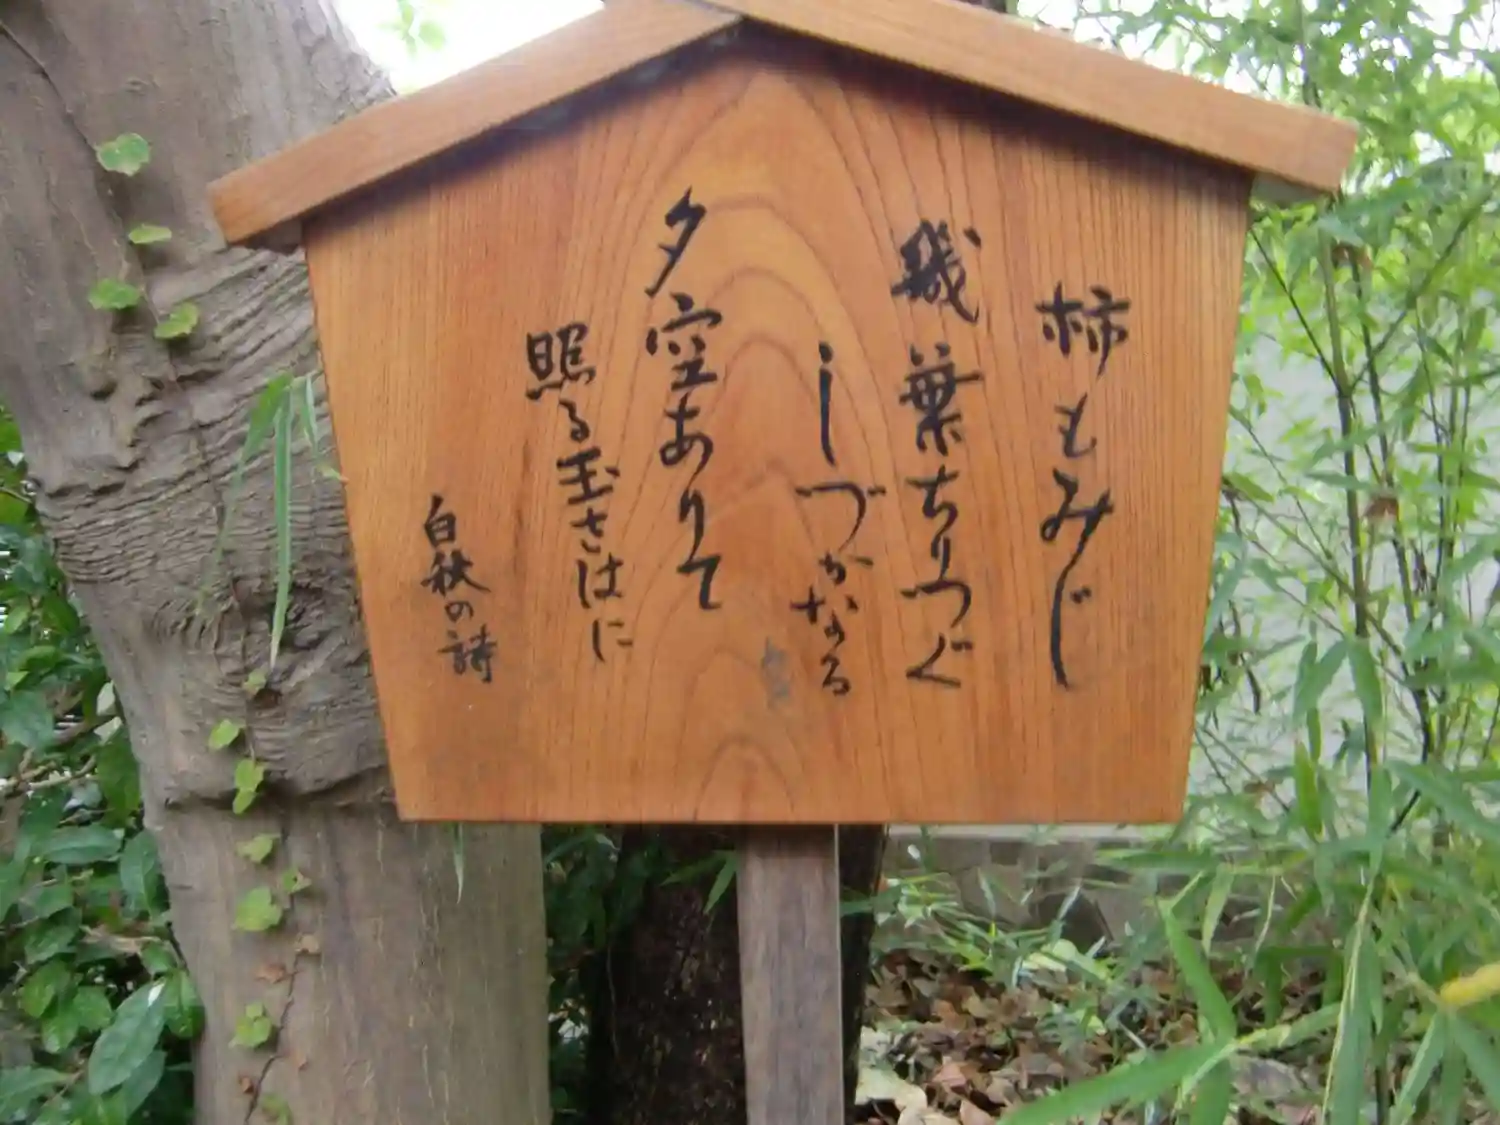 柿もみじ
幾葉ちりつぐ
しづかなる
夕空ありて
照る玉さはに
白秋の詩